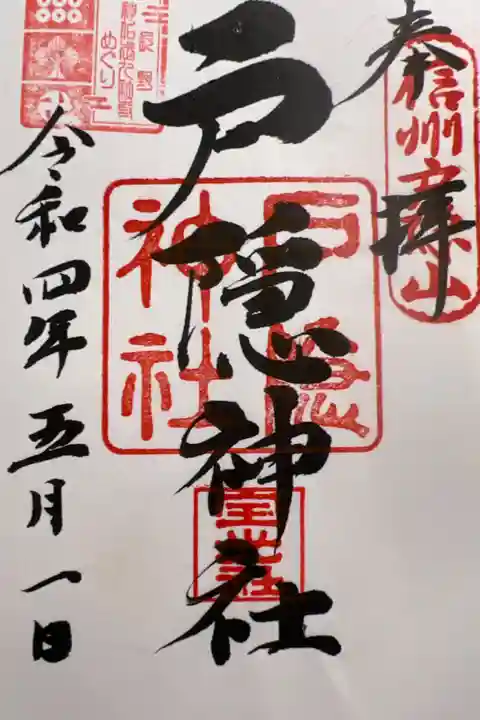 奉拝
信州
山
戸隠神社
戸隠
神社
宝光社
めぐり
令和四年五月一日